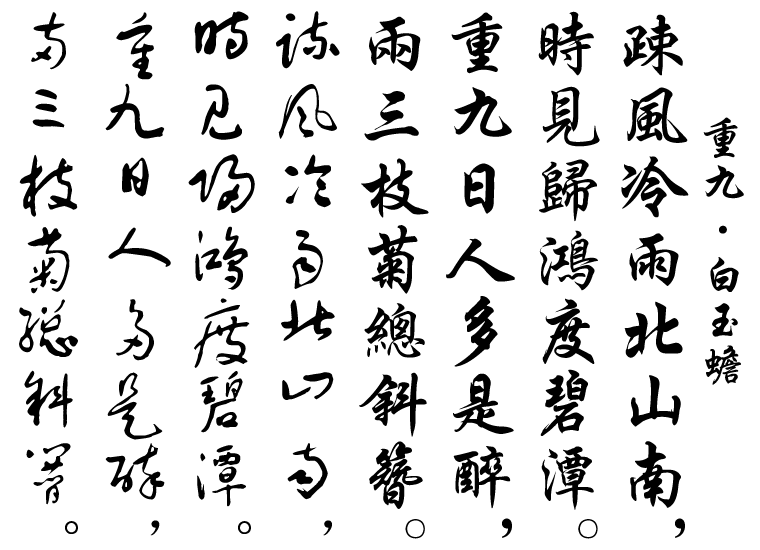 重九·白玉蟾
疎風冷雨北山南，
時見歸鴻度碧潭。
重九日人多是醉，
兩三枝菊總斜簪。
疎風冷雨北山南，
時見歸鴻度碧潭。
重九日人多是醉，
兩三枝菊總斜簪。